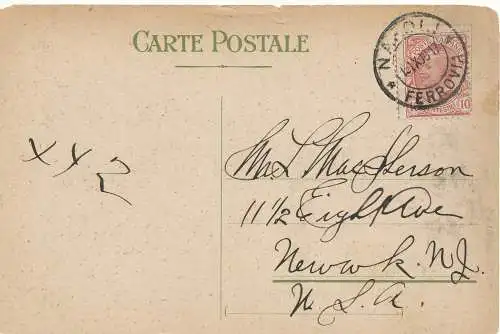 CARTE POSTALE
NAPOLI
* FERROVIA
10
X X 2
Mr L MacPherson
11 1/2 Eight Ave
Newark. N.J.
U. S. A.